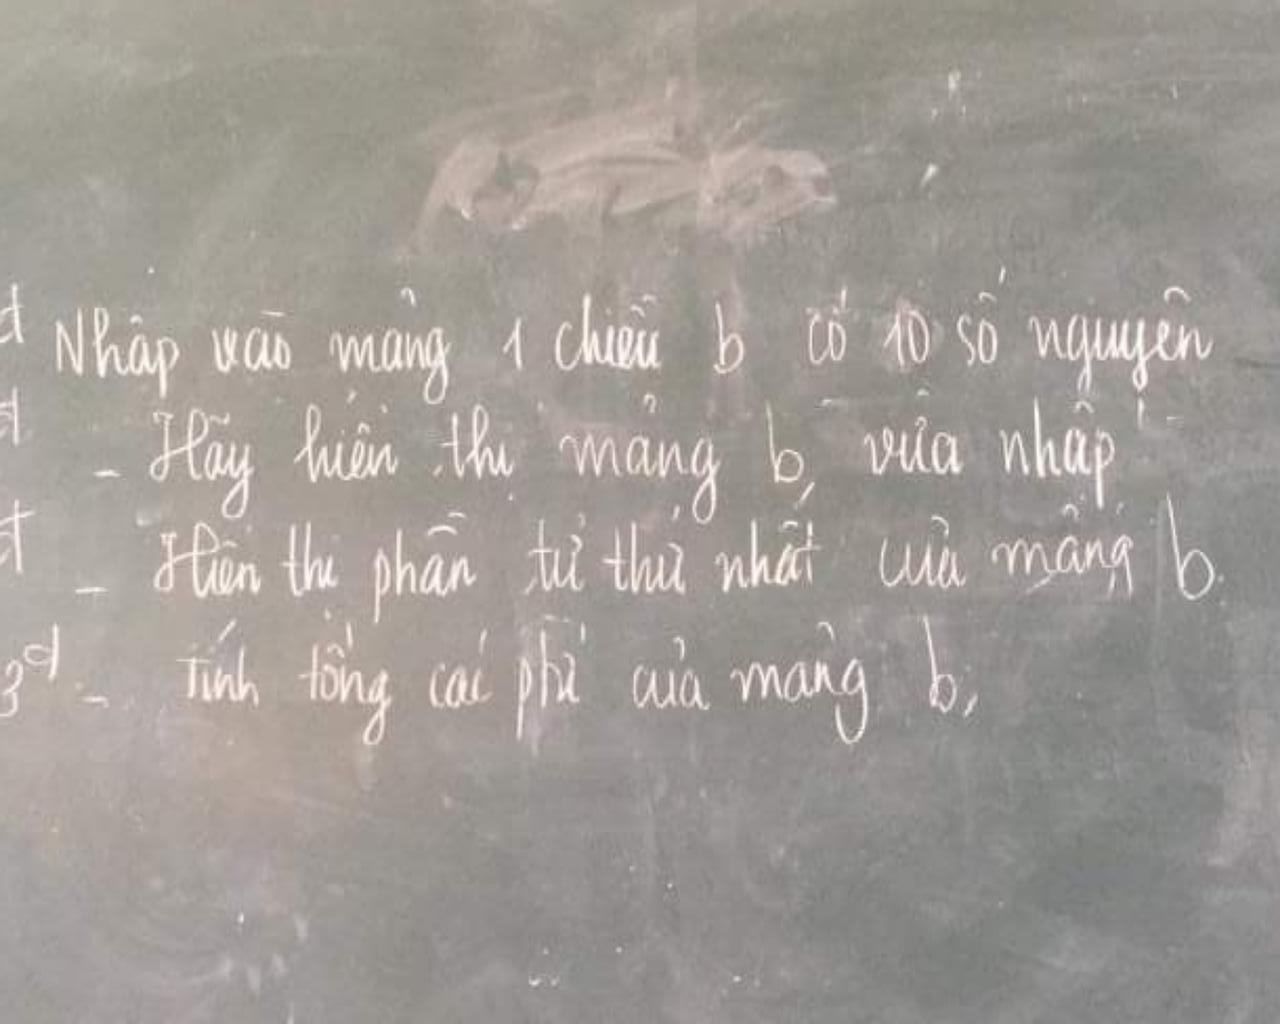 đ Nhập vào mảng 1 chiều b có 10 số nguyên
đ - Hãy hiển thị mảng b, vừa nhập
đ - Hiển thị phần tử thứ nhất của mảng b.
3đ - Tính tổng các ptử của mảng b,